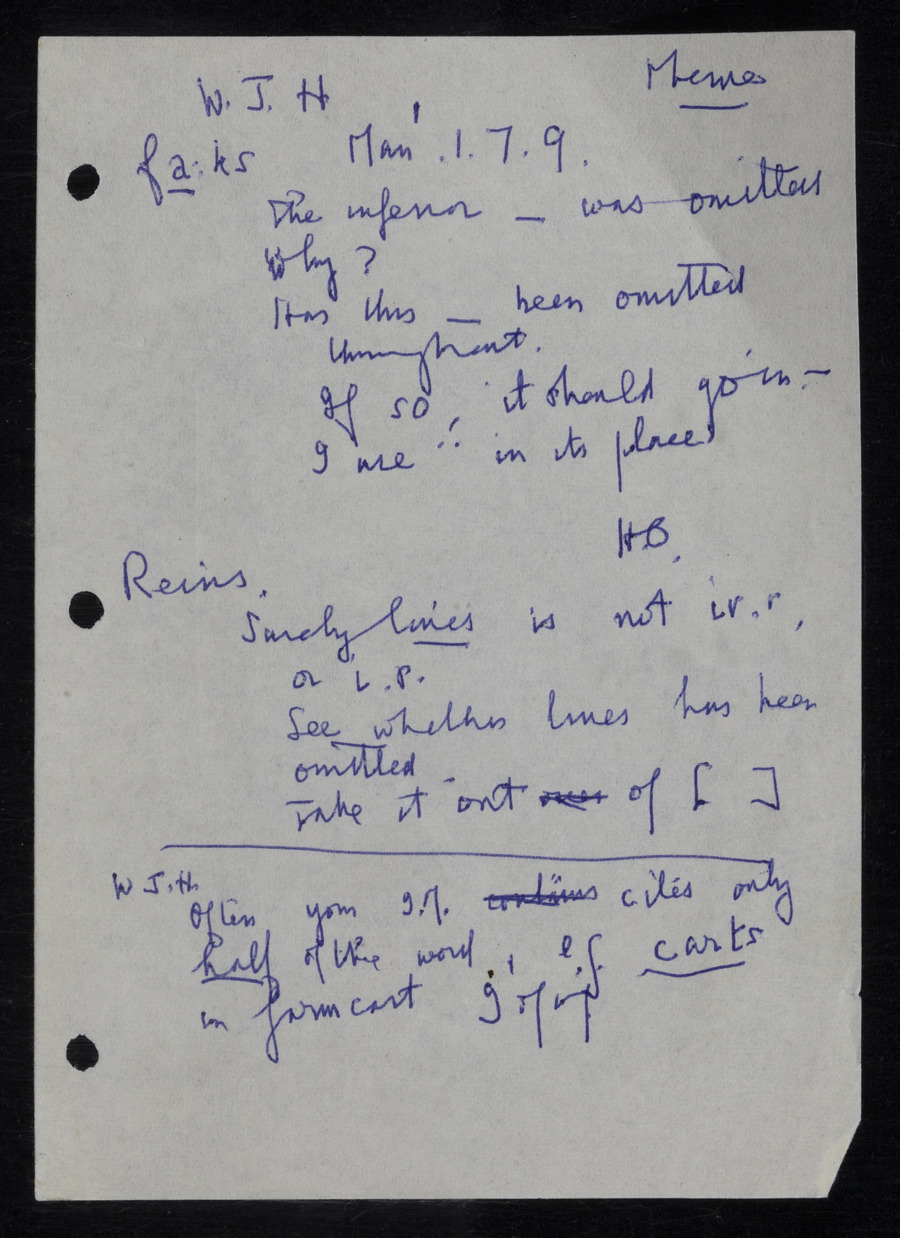 Memo
W. J. H
fa:ks Man' .1.7.9.
The inferior — was omitted
Why?
Has this — been omitted
throughout.
If so, it should go in.—
I use in its place
H.B.
Reins.
Surely lines is not ir.r,
or i.p.
See whether lines has been
omitted
Take it out of [ ]
W. J. H.
Often your I.M. cites only
half of the word, e.g. carts
in farmcart